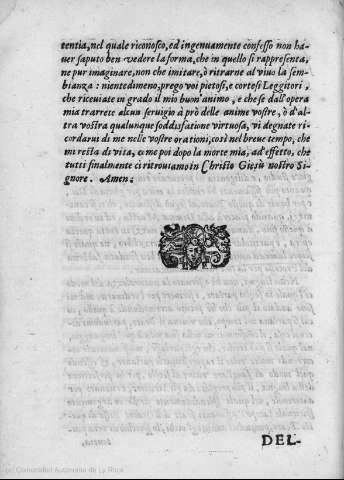 tentia, nel quale riconosco, ed ingenuamente confesso non ha-
uer saputo ben vedere la forma, che in quello si rappresenta,
ne pur imaginare, non che imitare, ò ritrarne al viuo la sem-
bianza : nientedimeno, prego voi pietosi, e cortesi Leggitori,
che riceuiate in grado il mio buon'animo, e che se dall'opera
mia trarrete alcun seruigio à prò delle anime vostre, ò d'al-
tra vostra qualunque soddisfatione virtuosa, vi degnate ri-
cordarui di me nelle vostre orationi, così nel breue tempo, che
mi resta di vita, come poi dopo la morte mia, ad'effetto, che
tutti finalmente ci ritrouiamo in Christo Giesù nostro Si-
gnore. Amen.
DEL-
(c) Comunidad Autónoma de La Rioja